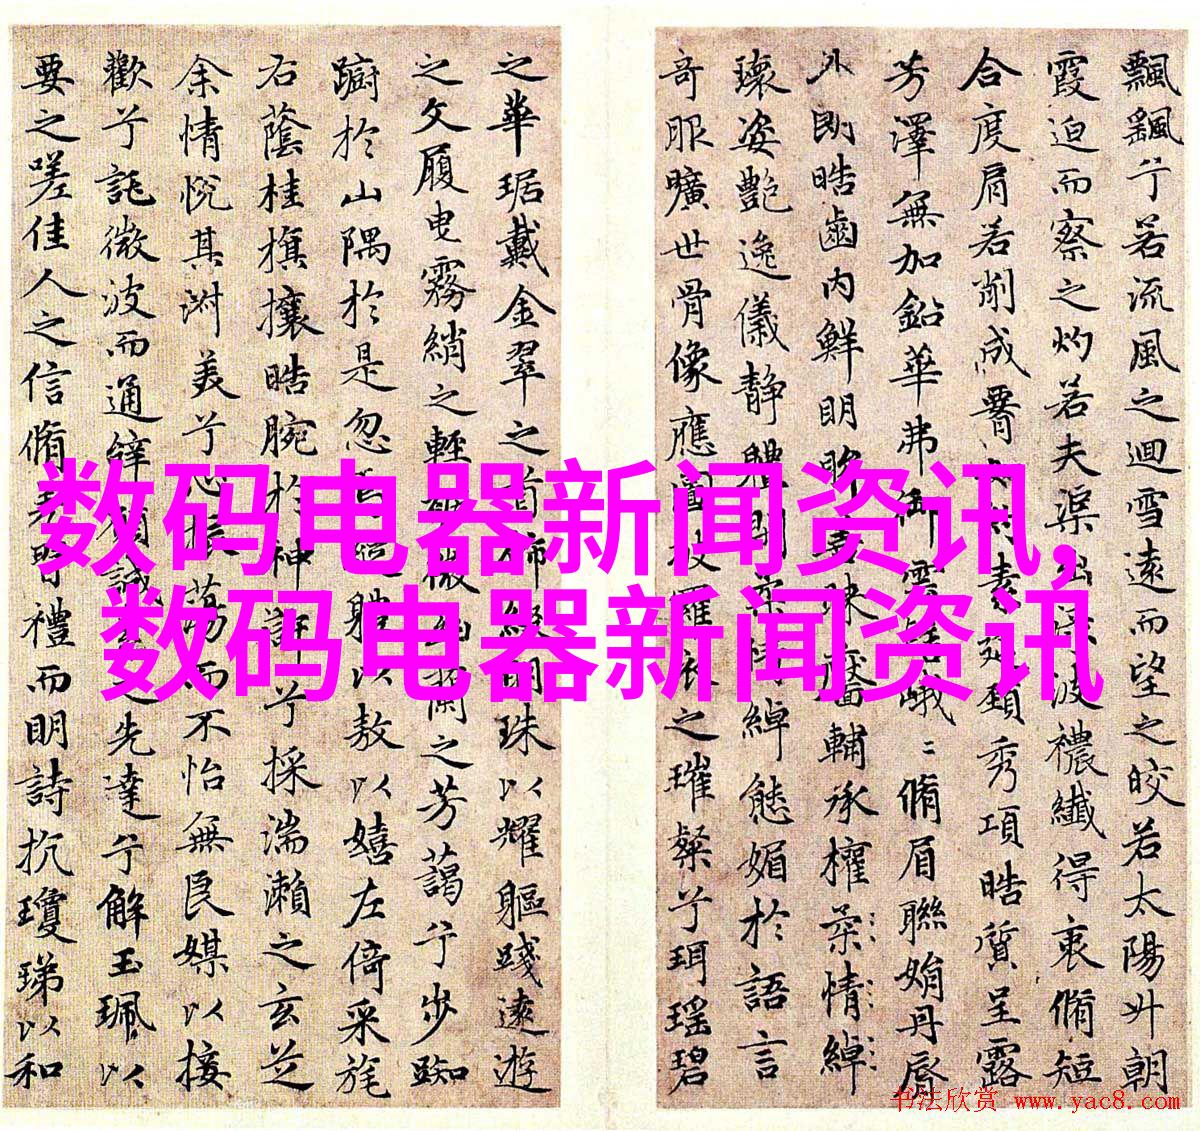 飄飖兮若流風之迴雪遠而望之皎若太陽升朝
霞迫而察之灼若夫渠出淥波襛纖得衷脩短
合度肩若削成素延頸秀項皓質呈露
芳澤無加鉛華弗御雲髻峨〻脩眉聯娟丹脣
外朗皓齒內鮮明眸善睞靨輔承權柔情綽
瓌姿艷逸儀靜體閑柔情綽態媚於語言
奇服曠世骨像應圖披羅衣之璀粲兮珥瑤碧
之華琚戴金翠之首飾綴明珠以耀軀踐遠遊
之文履曳霧綃之輕裾微幽蘭之芳藹兮步踟
躕於山隅於是忽焉縱體以敖以嬉左倚采旄
右蔭桂旗攘皓腕於神滸兮採湍瀨之玄芝
余情悅其淑美兮心振蕩而不怡無良媒以接
歡兮託微波而通辭願誠素之先達兮解玉珮以
要之嗟佳人之信脩羌習禮而明詩抗瓊珶以和
数码电器新闻资讯,
数码电器新闻资讯
书法欣赏 www.yac8.com